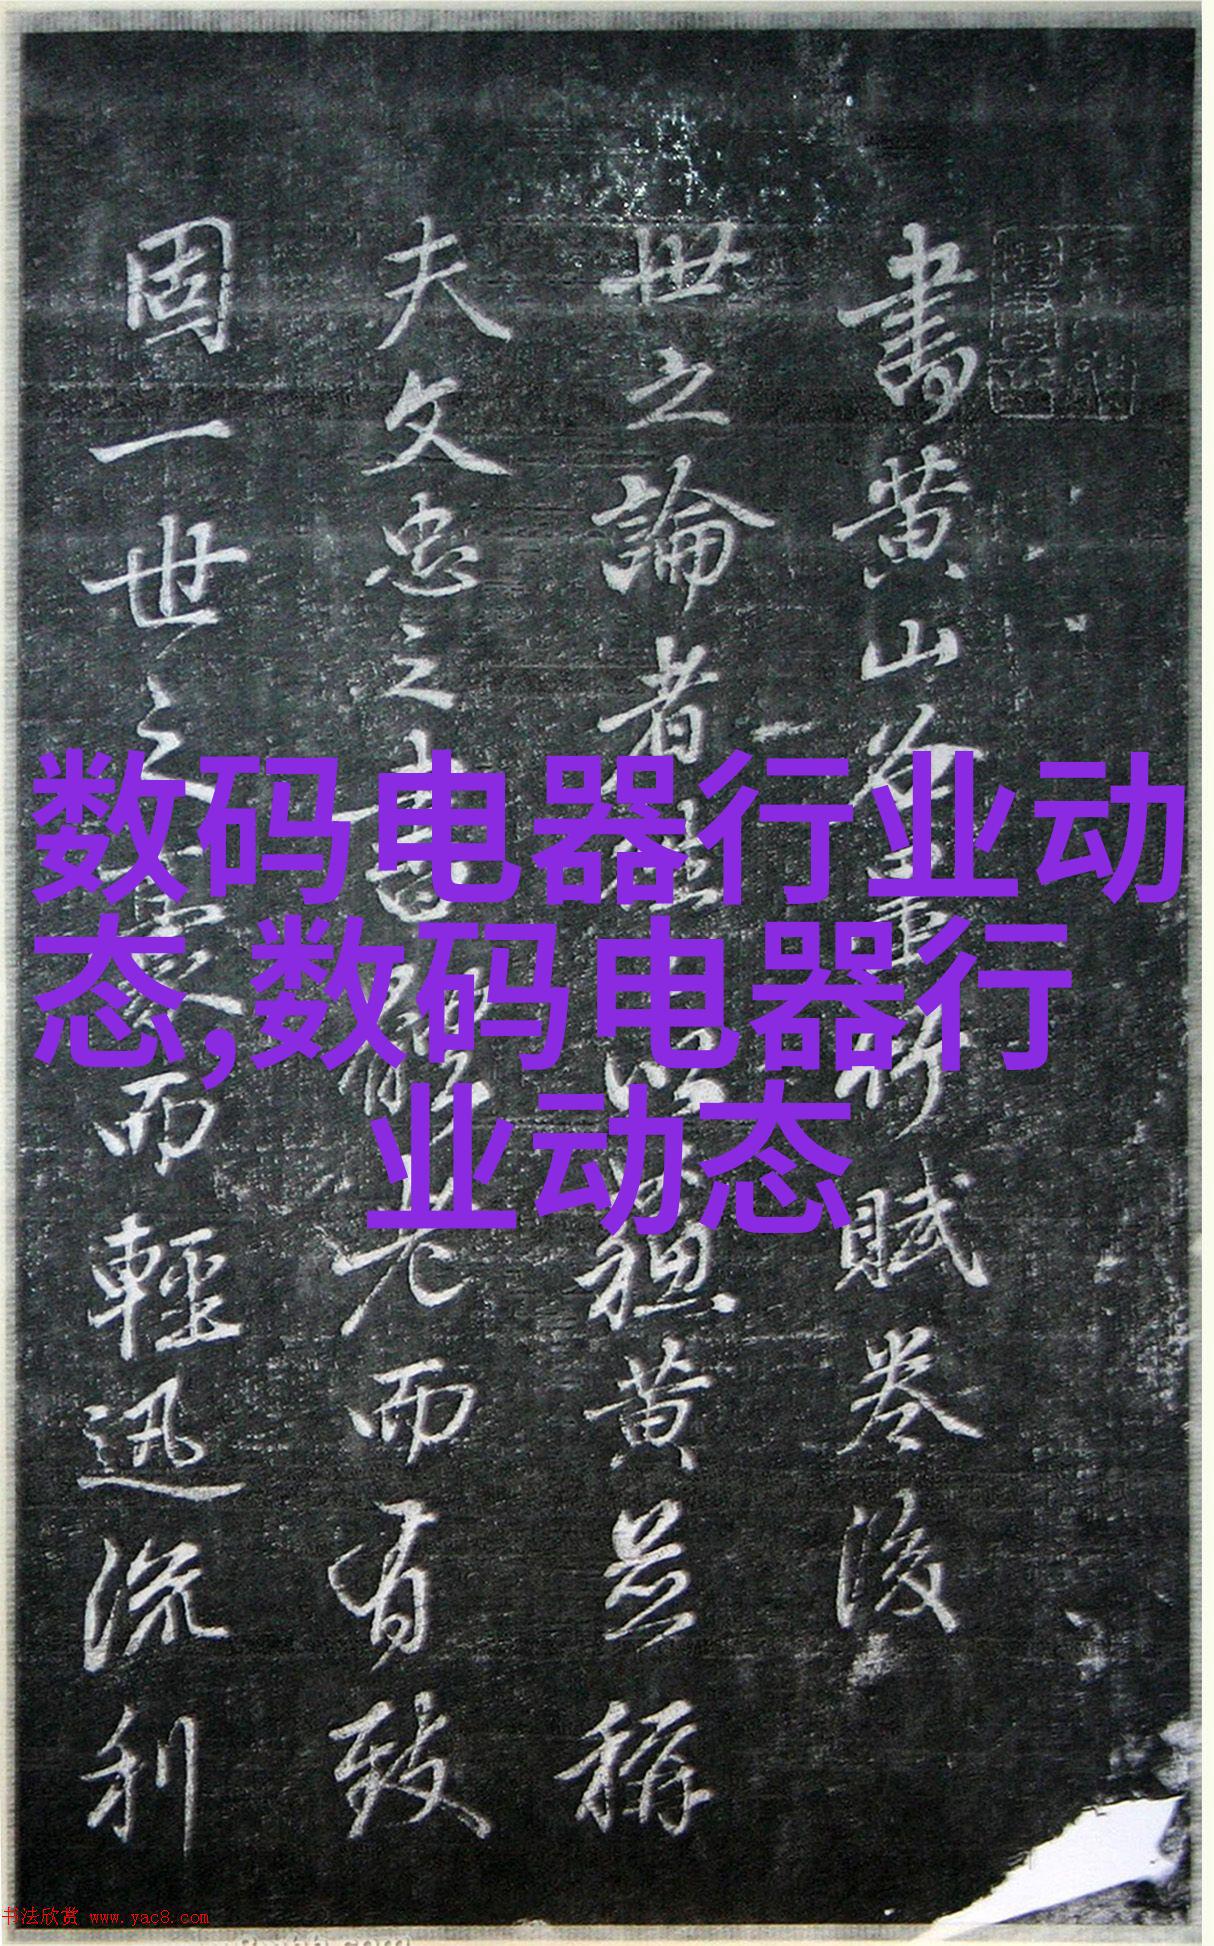 書黄山谷
賦卷後
世之論者
以蘇
黄並稱
夫文忠之書
老而有致
固一世之
而輕迅流利
数码电器行业动
态,数码电器行
业动态
书法欣赏 www.yac8.com